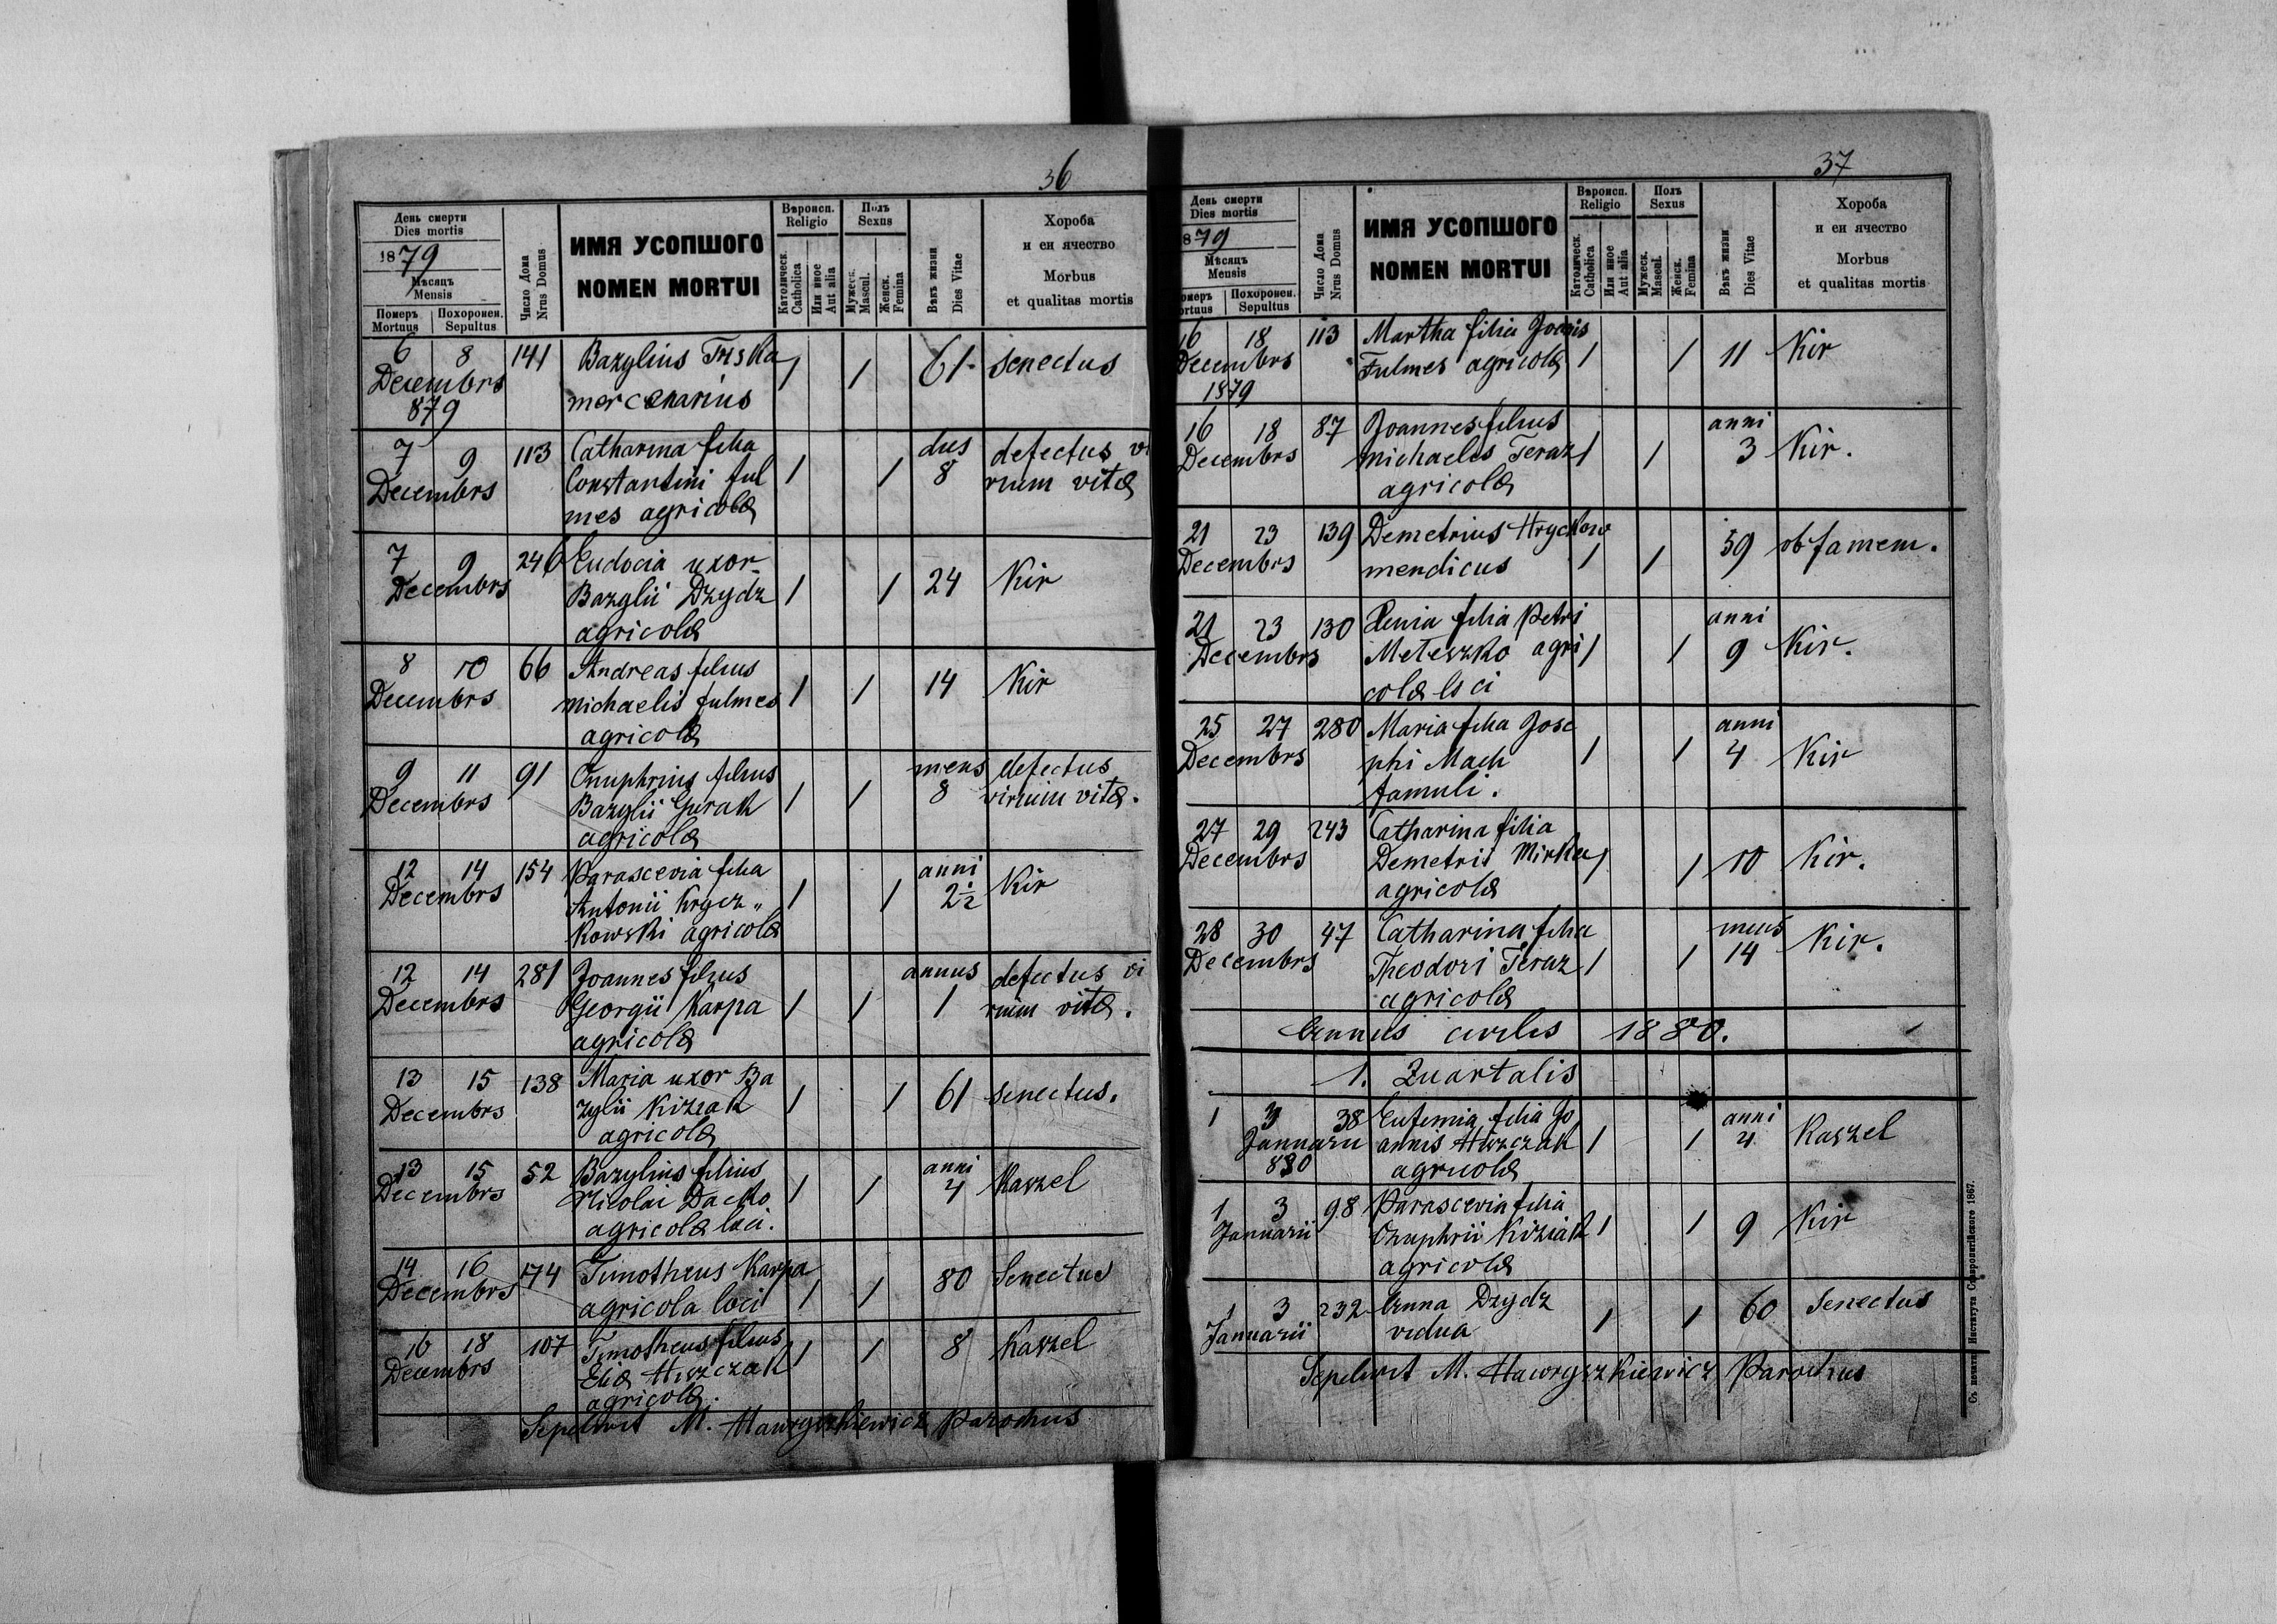 36
День смерти
Dies mortis
1879
Мѣсяцъ
Mensis
Померъ
Mortuus
Похоронен.
Sepultus
Число Дома
Nrus Domus
ИМЯ УСОПШОГО
NOMEN MORTUI
Вѣроисп.
Religio
Католическ.
Catholica
Или иное
Aut alia
Полъ
Sexus
Мужеск.
Mascul.
Женск.
Femina
Вѣкъ жизни
Dies Vitae
Хороба
и еи ячество
Morbus
et qualitas mortis
6 8 141 Bazylius Triska 1 1 61 senectus
Decembrs mercenarius
879
7 9 113 Catharina filia 1 1 dus 8 defectus vi
Decembrs Constantini ful rium vitæ
mes agricolæ
7 9 246 Eudocia uxor 1 1 24 Kir
Decembrs Bazylii Dzydz
agricolæ
8 10 66 Andreas filius 1 1 14 Kir
Decembrs michaelis fulmes
agricolæ
9 11 91 Onuphrius filius 1 1 mens 8 defectus
Decembrs Bazylii Gurak virium vitæ.
agricolæ
12 14 154 Parascevia filia 1 1 anni 2½ Kir
Decembrs Antonii Krycz„
Kowski agricolæ
12 14 281 Joannes filius 1 1 annus 1 defectus vi
Decembrs Georgii Karpa rium vitæ.
agricolæ
13 15 138 Maria uxor Ba 1 1 61 senectus.
Decembrs zylii Kiziak
agricolæ
13 15 52 Bazylius filius 1 1 anni 4 Kaszel
Decembrs Nicolai Dacko
agricolæ loci.
14 16 174 Timotheus Karpa 1 1 80 Senectus
Decembrs agricola loci
16 18 107 Timotheus filius 1 1 8 Kaszel
Decembrs Eliæ Huszczak
agricolæ.
Sepelivit M. Hawryszkiewicz Parochus
37
День смерти
Dies mortis
1879
Мѣсяцъ
Mensis
омеръ
ortuus
Похоронен.
Sepultus
Число Дома
Nrus Domus
ИМЯ УСОПШОГО
NOMEN MORTUI
Вѣроисп.
Religio
Католическ.
Catholica
Или иное
Aut alia
Полъ
Sexus
Мужеск.
Mascul.
Женск.
Femina
Вѣкъ жизни
Dies Vitae
Хороба
и еи ячество
Morbus
et qualitas mortis
16 18 113 Martha filia Joanis 1 1 11 Kir
Decembrs Fulmes agricolæ
1879
16 18 87 Joannes filius 1 1 anni 3 Kir.
Decembrs michaelis Teraz
agricolæ
21 23 139 Demetrius Hryckow 1 1 59 ob famem.
Decembrs mendicus
21 23 130 Xenia filia Petri 1 1 anni 9 Kir.
Decembrs Meteszko agri
colæ loci
25 27 280 Maria filia Jose 1 1 anni 4 Kir
Decembrs phi Mach
famuli.
27 29 243 Catharina filia 1 1 10 Kir.
Decembrs Demetrii Mirka
agricolæ
28 30 47 Catharina filia 1 1 mens 14 Kir.
Decembrs Theodori Teraz
agricolæ
Annus civilis 1880.
1. Quartalis
1 3 38 Eufemia filia Jo 1 1 anni 4 Kaszel
Januarii annis Huszczak
880 agricolæ
1 3 98 Parascevia filia 1 1 9 Kir
Januarii Onuphrii Kiziak
agricolæ
1 3 232 Anna Dzydz 1 1 60 Senectus
Januarii vidua
Sepelivit M. Hawryszkiewicz Parochus
Съ печатни Института Ставропигійского 1867.